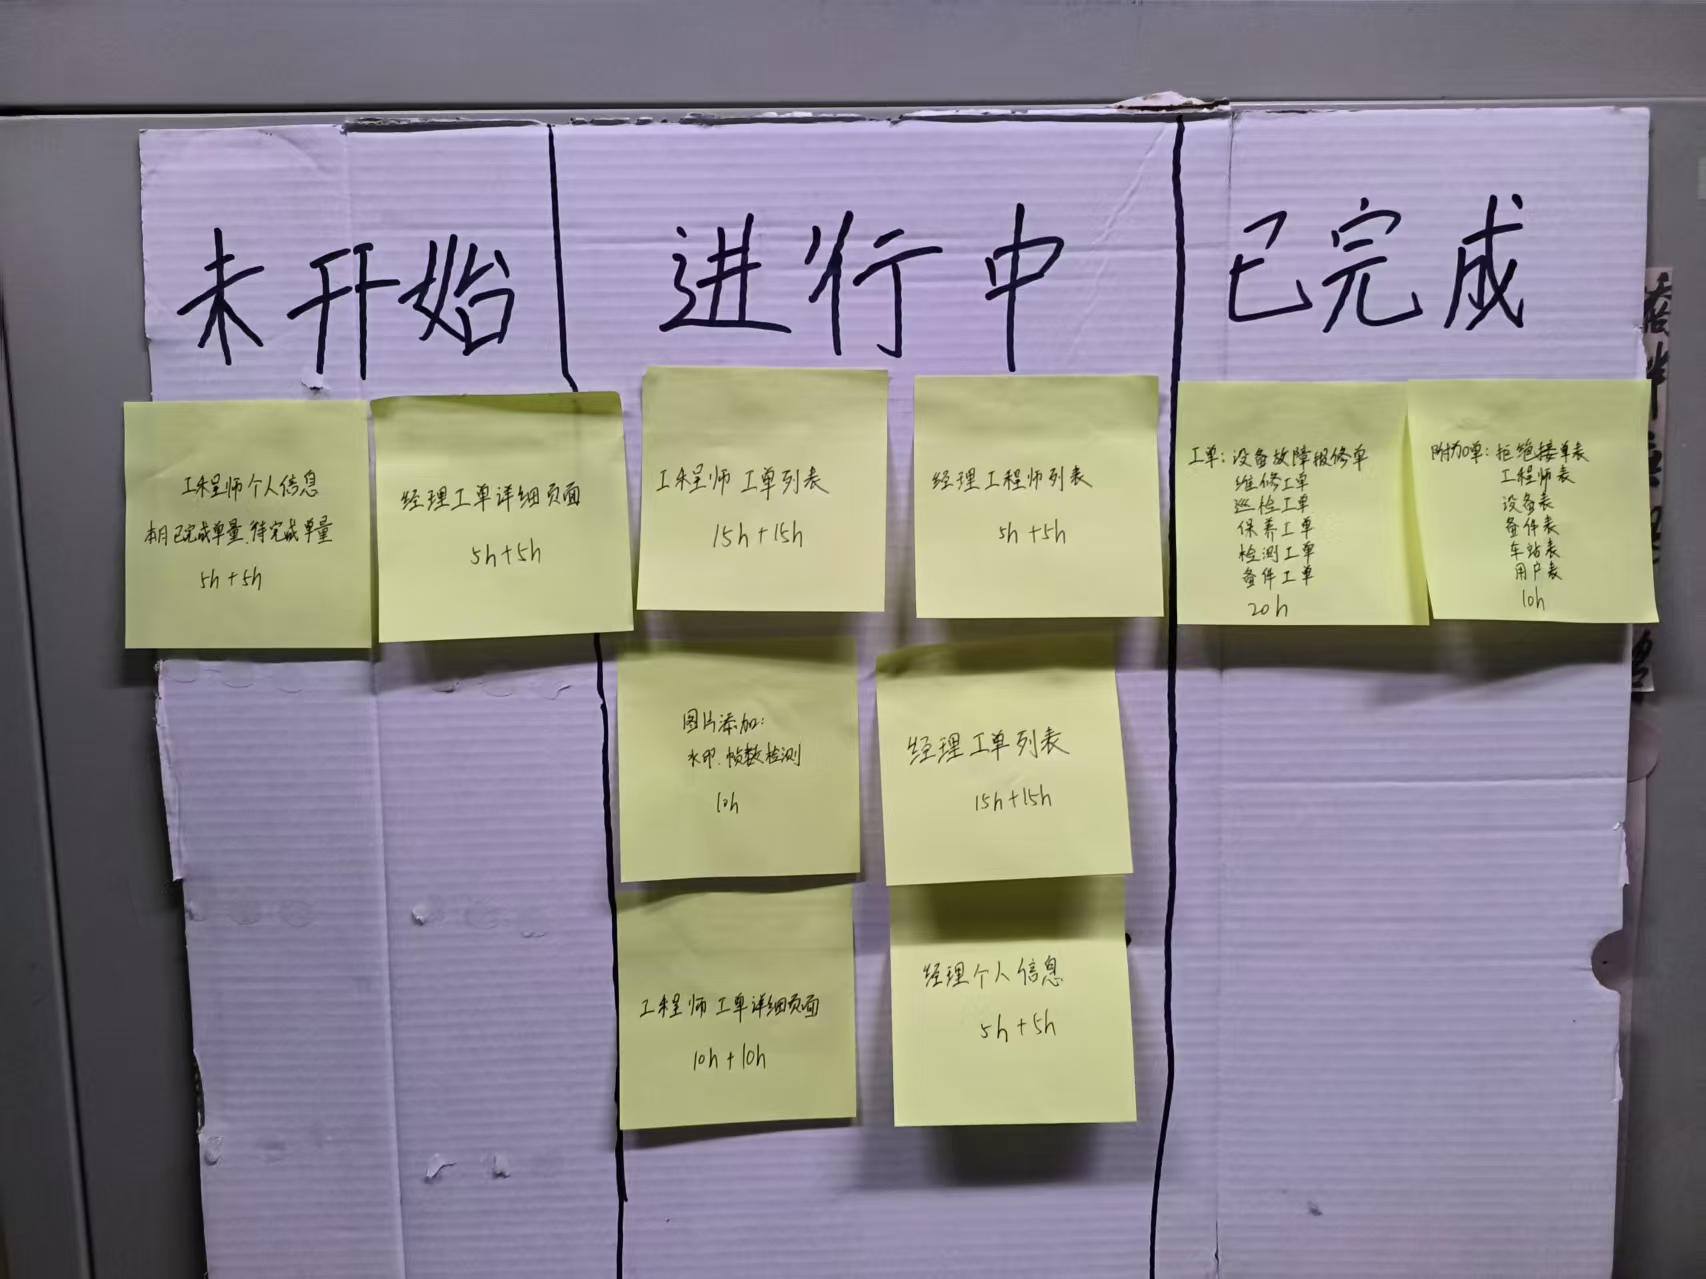 未开始
进行中
已完成
工程师个人信息
本月已完成单量、待完成单量
5h+5h
经理工单详细页面
5h+5h
工程师 工单列表
15h+15h
经理工程师列表
5h+5h
图片添加:
水印、帧数检测
10h
经理工单列表
15h+15h
工程师 工单详细页面
10h+10h
经理个人信息
5h+5h
工单:设备故障报修单
维修工单
巡检工单
保养工单
检测工单
备件工单
20h
附加单:拒绝接单表
工程师表
设备表
备件表
车站表
用户表
10h